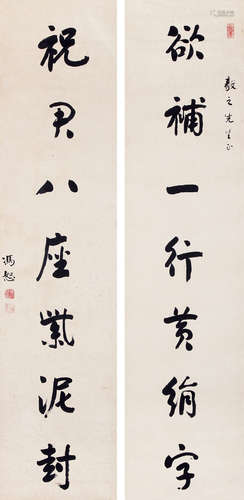 敬之先生正
欲補一行黃絹字
祝君八座紫泥封
馮恕